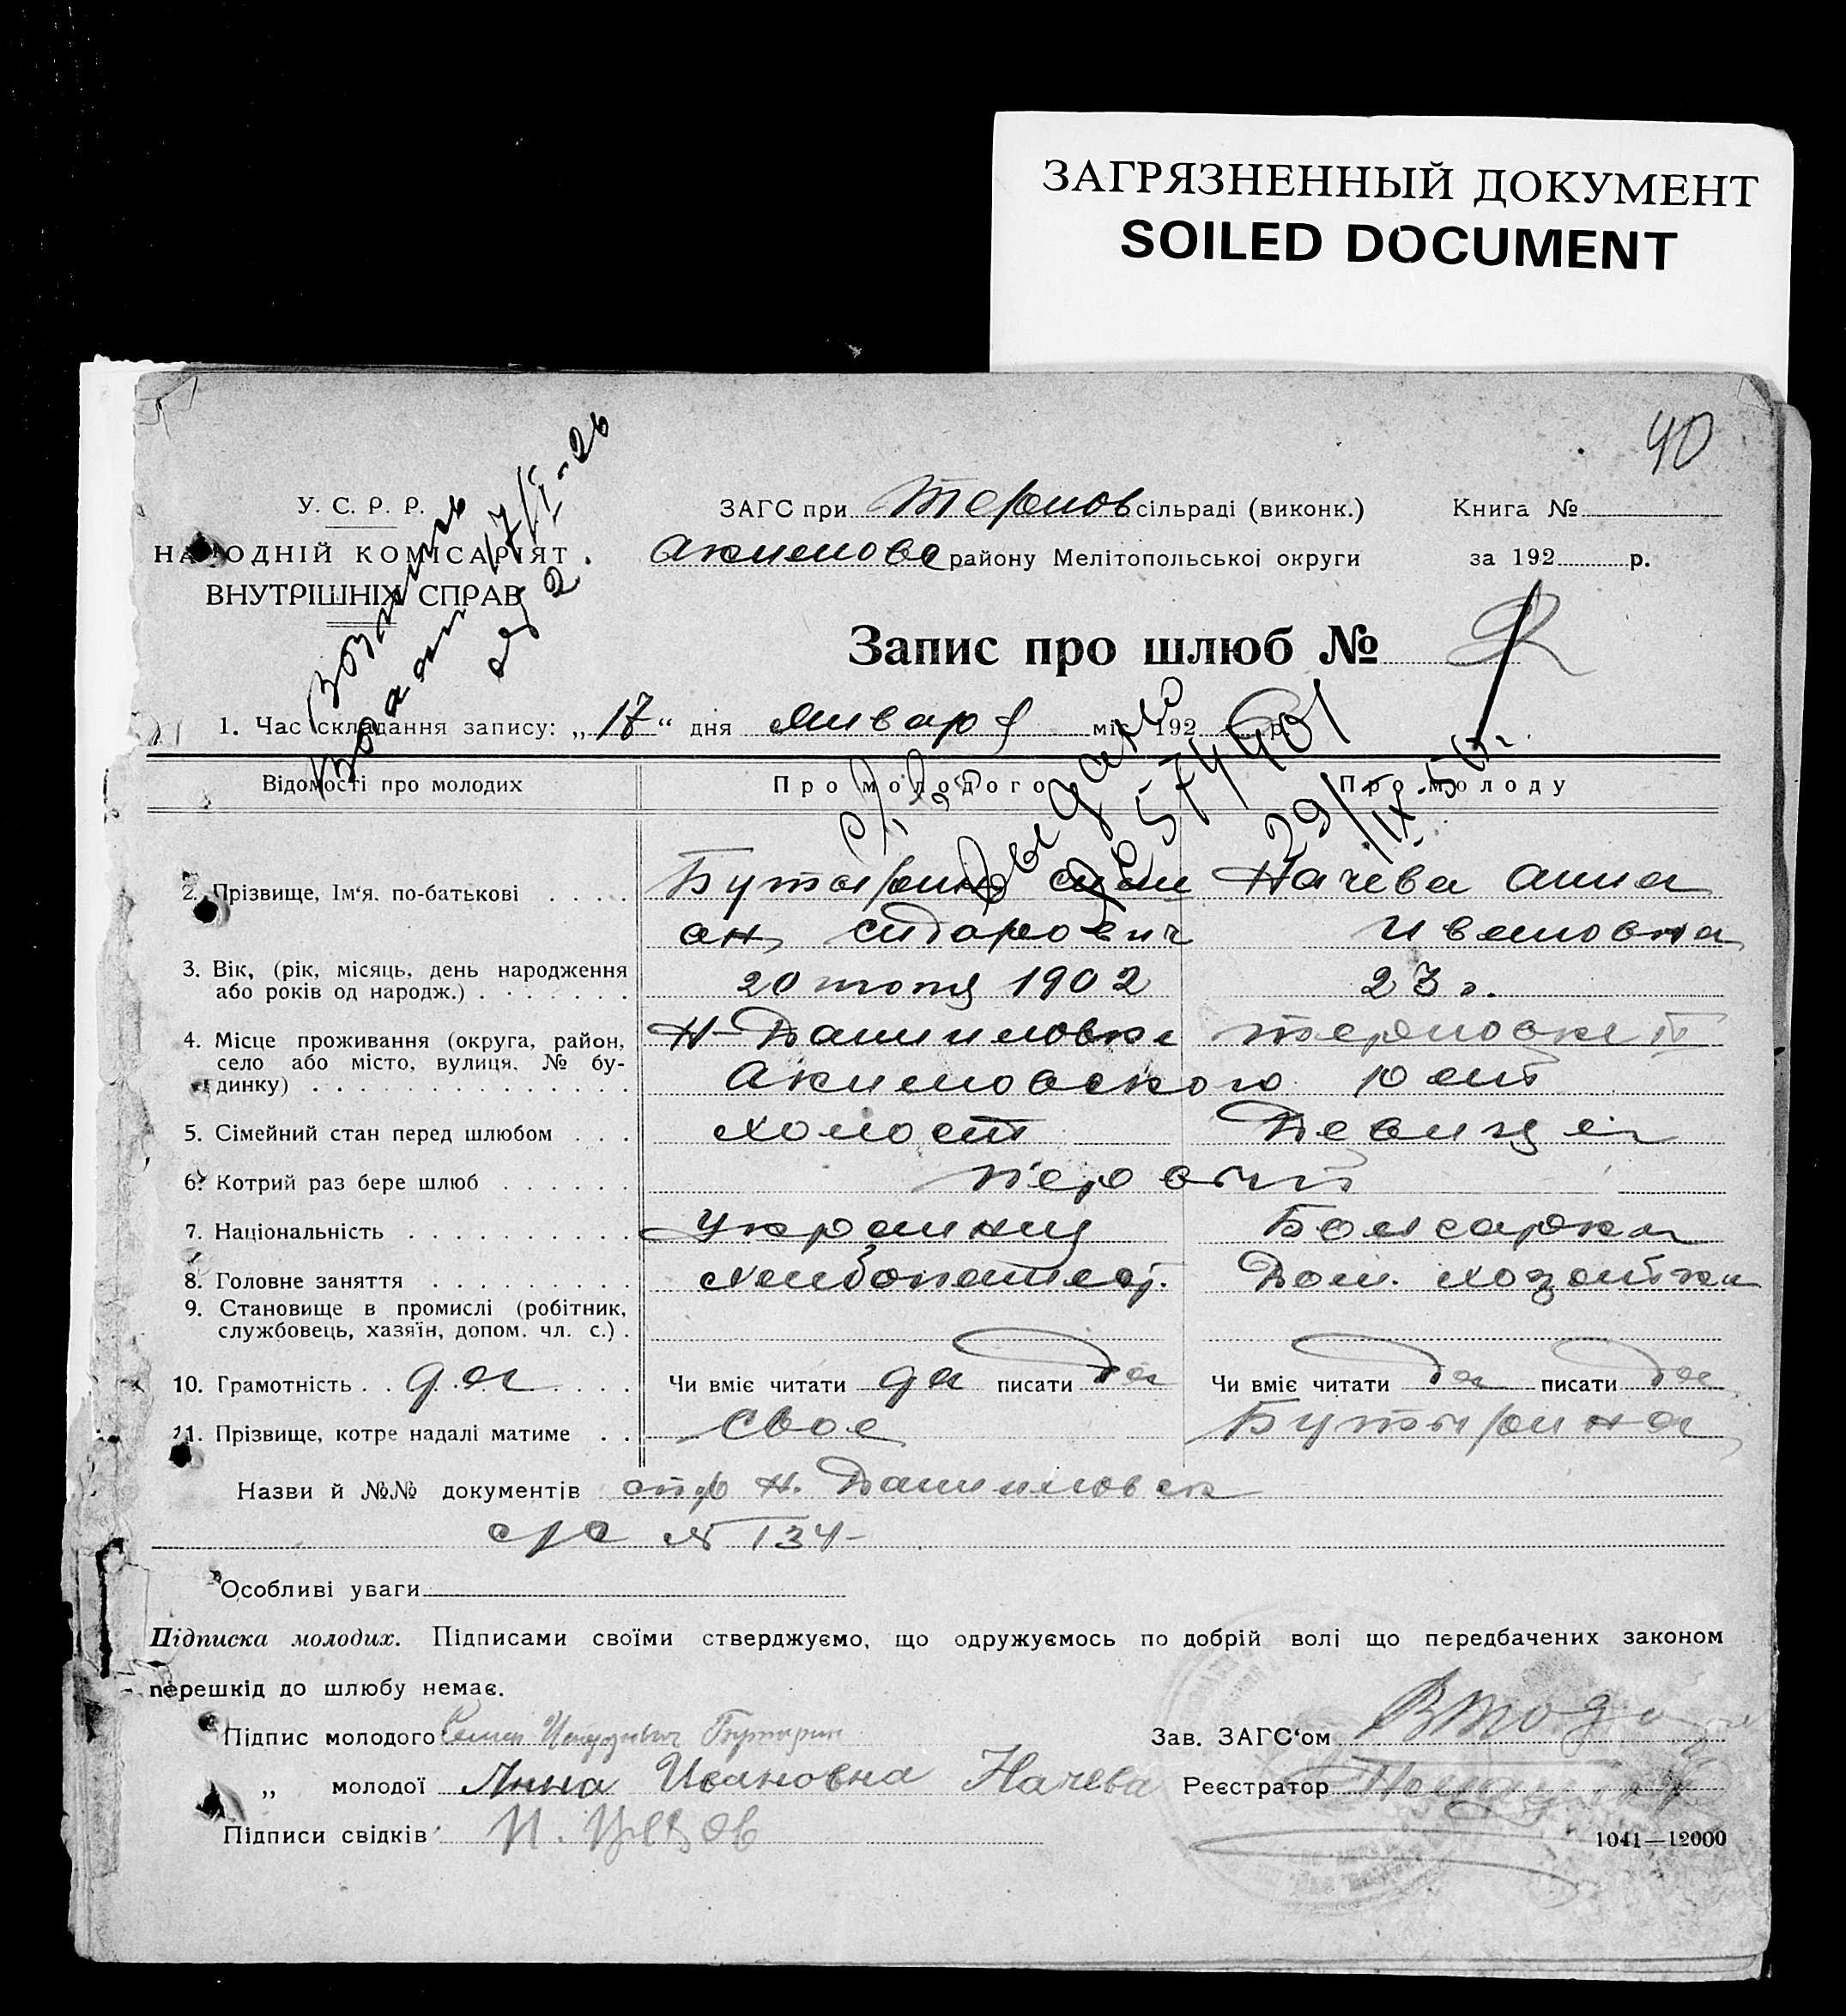 ЗАГРЯЗНЕННЫЙ ДОКУМЕНТ
SOILED DOCUMENT
40
У. С. Р. Р.
НАРОДНІЙ КОМІСАРІЯТ
ВНУТРІШНІХ СПРАВ
17/I-26
ЗАГС при Тернов сільраді (виконк.)
Акимовс району Мелітопольської округи
Книга №
за 192 р.
Запис про шлюб №
1. Час складання запису: „17“ дня января міс. 192 6 р.
Відомості про молодих
Про молодого
Про молоду
Выдано
29/IX-
2. Прізвище, Ім'я. по-батькові Бутырин Сем Начева Анна
ан Сидорович Ивановна
3. Вік, (рік, місяць, день народження
або років од народж.) 20 июня 1902 23 г.
4. Місце проживання (округа, район,
село або місто, вулиця. № бу-
динку)
Н-Данииловка Терновка IV
Акимовского района
5. Сімейний стан перед шлюбом холост Девица
6. Котрий раз бере шлюб первый
7. Національність Украинец Болгарка
8. Головне заняття хлебопашец. Дом. хозяйка
9. Становище в промислі (робітник,
службовець, хазяїн, допом. чл. с.)
10. Грамотність да Чи вміє читати да писати да Чи вміє читати да писати да
11. Прізвище, котре надалі матиме свое Бутырина
Назви й №№ документів Н. Данииловск
с/с № 134
Особливі уваги
Підписка молодих. Підписами своїми стверджуємо, що одружуємось по добрій волі що передбачених законом
перешкід до шлюбу немає.
Підпис молодого Бутырин
Зав. ЗАГС'ом
„ молодої Анна Ивановна Начева
Реєстратор
Підписи свідків
1041—12000